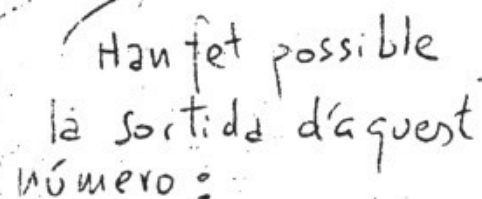 Han fet possible
la sortida d'aquest
número: